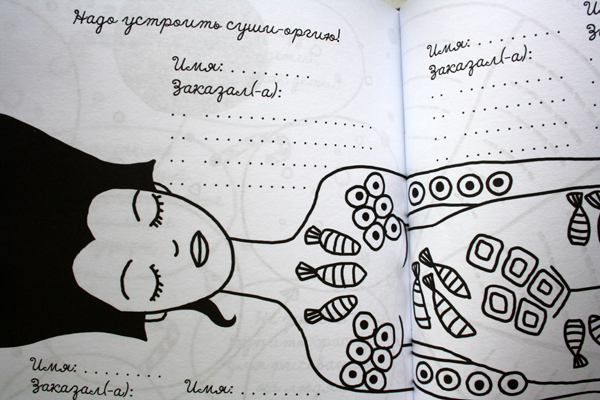 Надо устроить суши-оргию!
Имя: . . . . . . . . .
Заказал(-а):
Имя: . . . . . . . . .
Заказал(-а):
Имя: . . . . . . . . .
Заказал(-а):
Имя: . . . . . . . . .